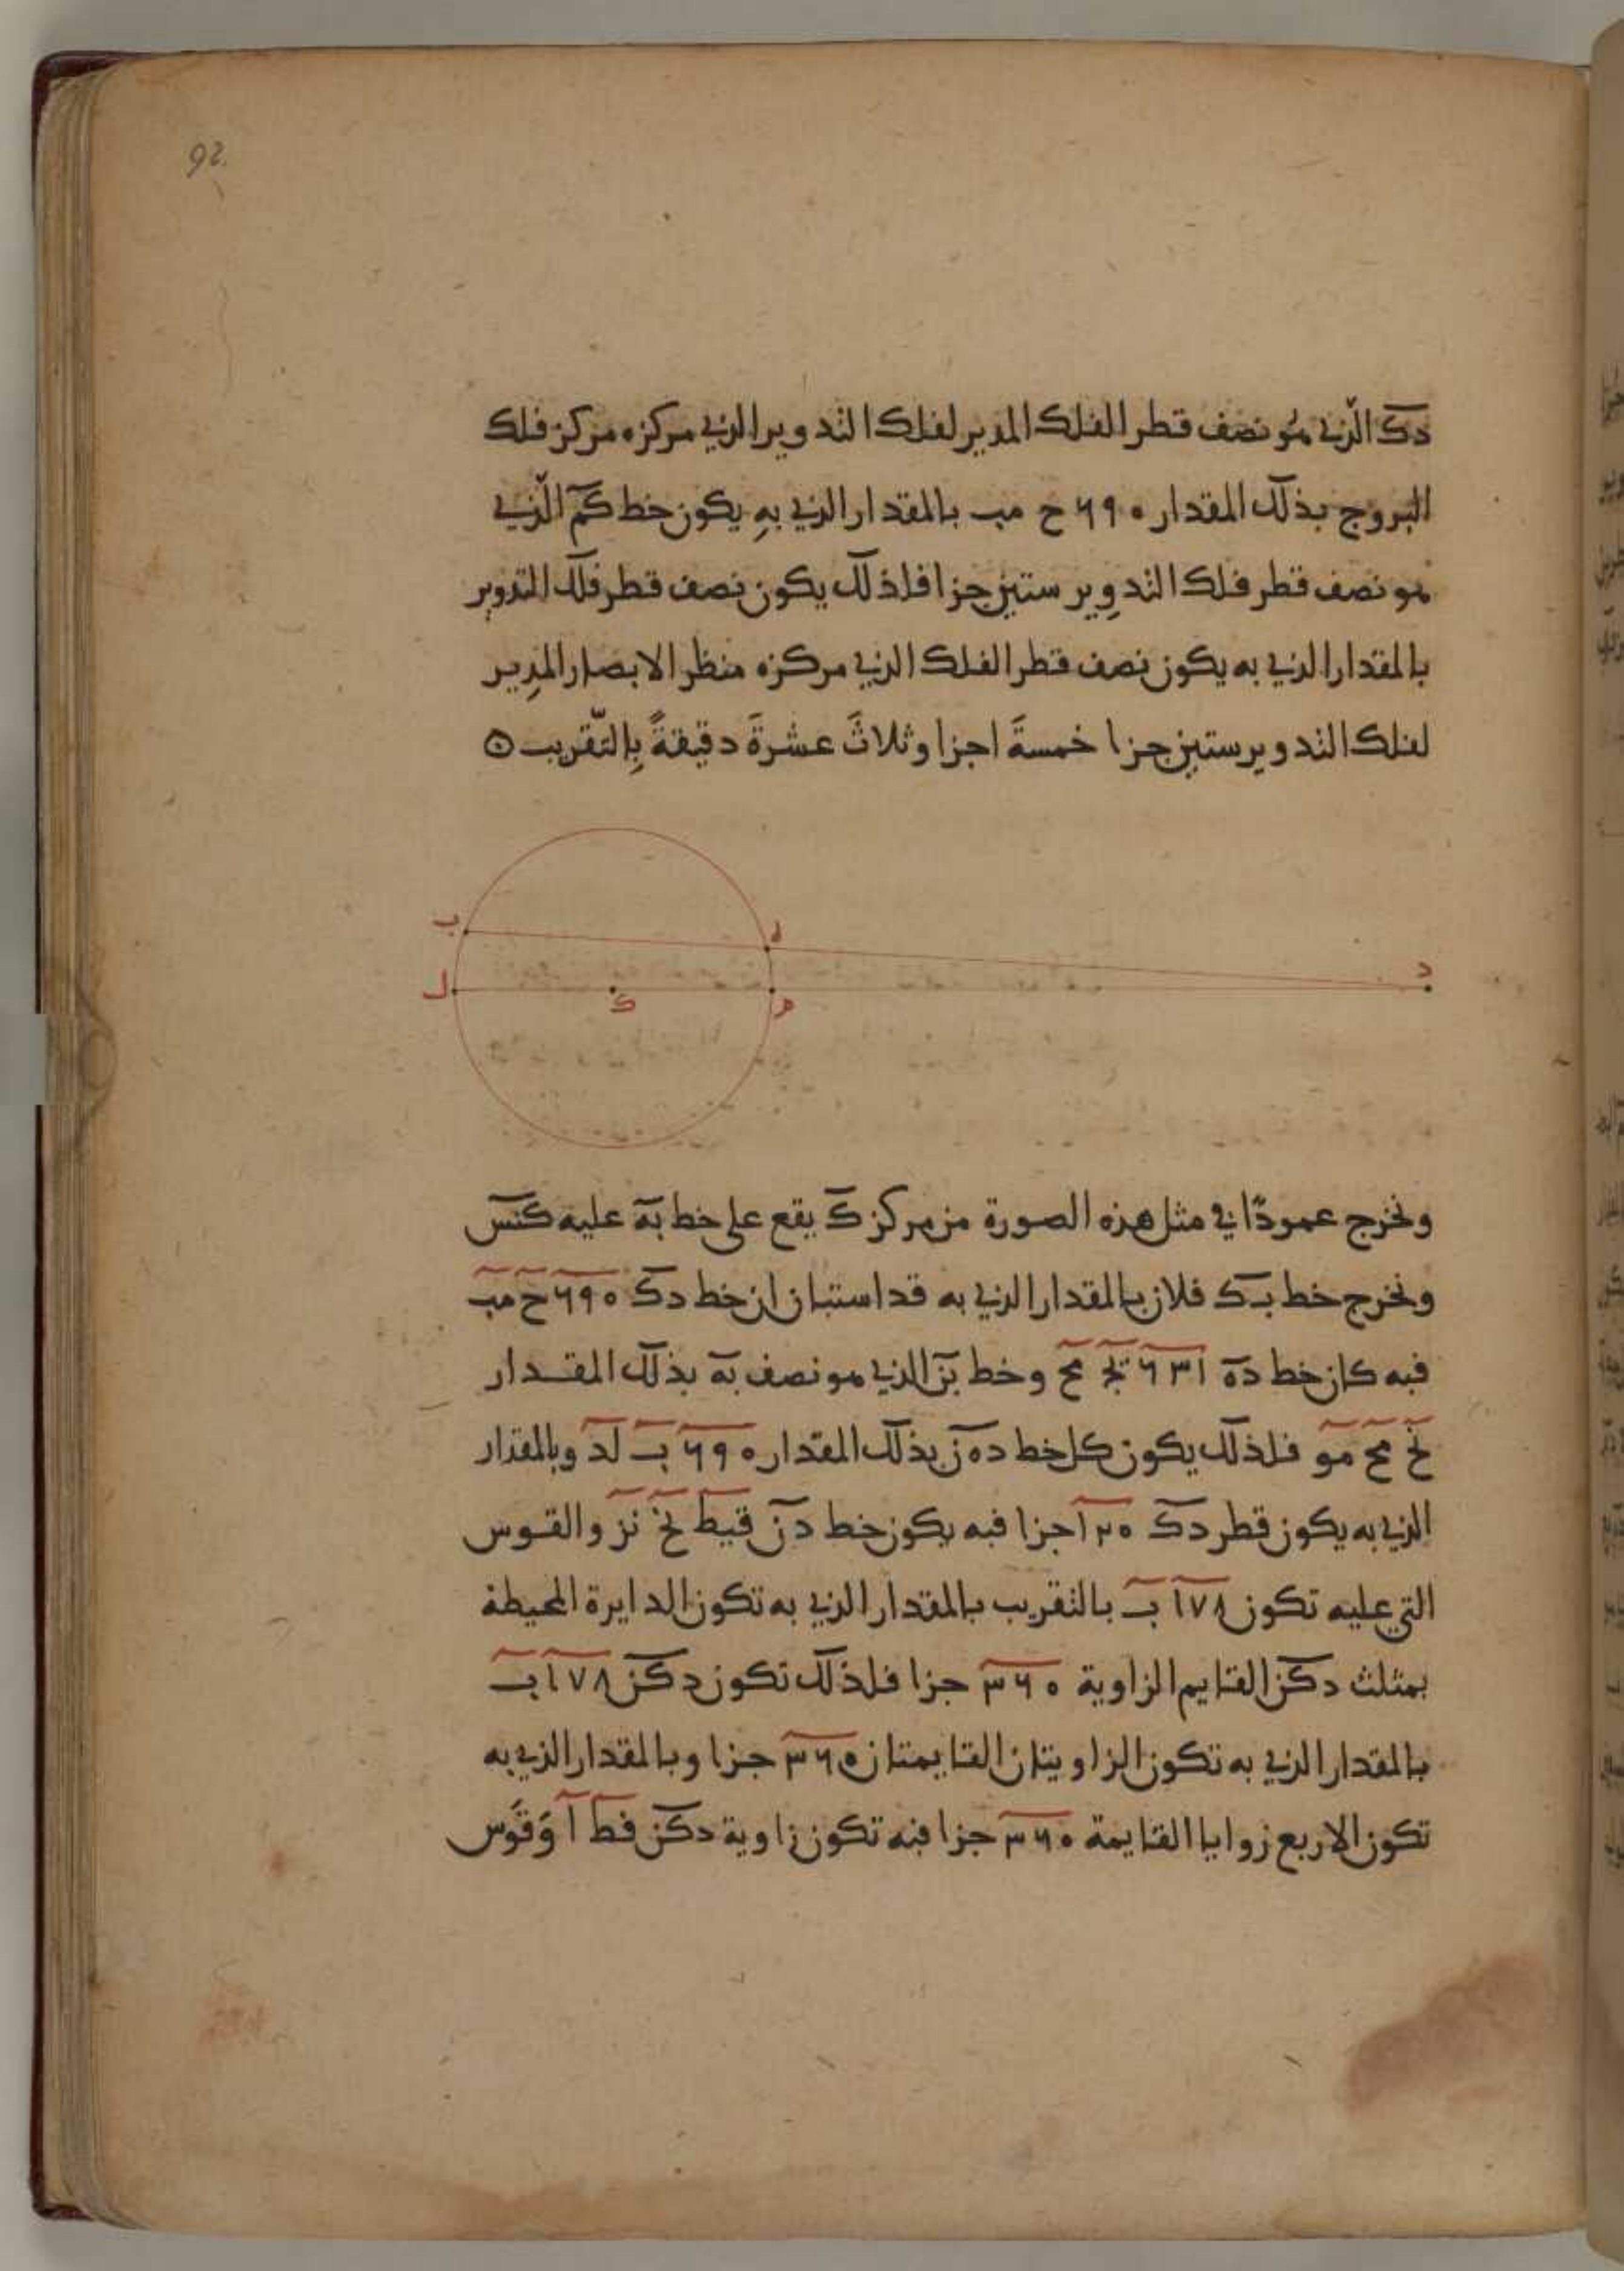 92.
دك الّذي هُو نصف قطر الفلك المدير لفلك التدوير الذي مركزه مركز فلك
البروج بذلك المقدار ٦٩٠ ح مب بالمقدار الذي بهِ يكون خط كم الّذي
هو نصف قطر فلك التدوِير ستين جزا فلذلك يكون نصف قطر فلك التدوير
بالمقدار الذي به يكون نصف قطر الفلك الذي مركزه منظر الابصار المدِير
لفلك التدوير ستين جزا خمسةَ اجزا وثلاثَ عشرةَ دقيقةً بِالتّقريب ه
ب
ل
ه
د
ك
ونخرج عمودًا في مثل هذه الصورة من مركز ك يقع على خط به عليه كنس
ونخرج خط بك فلان بالمقدار الذي به قد استبان ان خط دك ٦٩٠ ح مب
فبه كان خط ده ٦٣١ يج مح وخط بن الذي هو نصف به بذلك المقدار
نح مح مو فلذلك يكون كل خط ده ن بذلك المقدار ٦٩٠ ب لد وبالمقدار
الذي به يكون قطر دك ١٢٠ جزا فبه يكون خط دن قيط نح نز والقوس
التي عليه تكون ١٧٨ ب بالتقريب بالمقدار الذي به تكون الدايرة المحيطة
بمثلث دكن القايم الزاوية ٣٦٠ جزا فلذلك تكون دكن ١٧٨ ب
بالمقدار الذي به تكون الزاويتان القايمتان ٣٦٠ جزا وبالمقدار الذي به
تكون الاربع زوايا القايمة ٣٦٠ جزا فبه تكون زاوية دكن فط ا وَقَوس